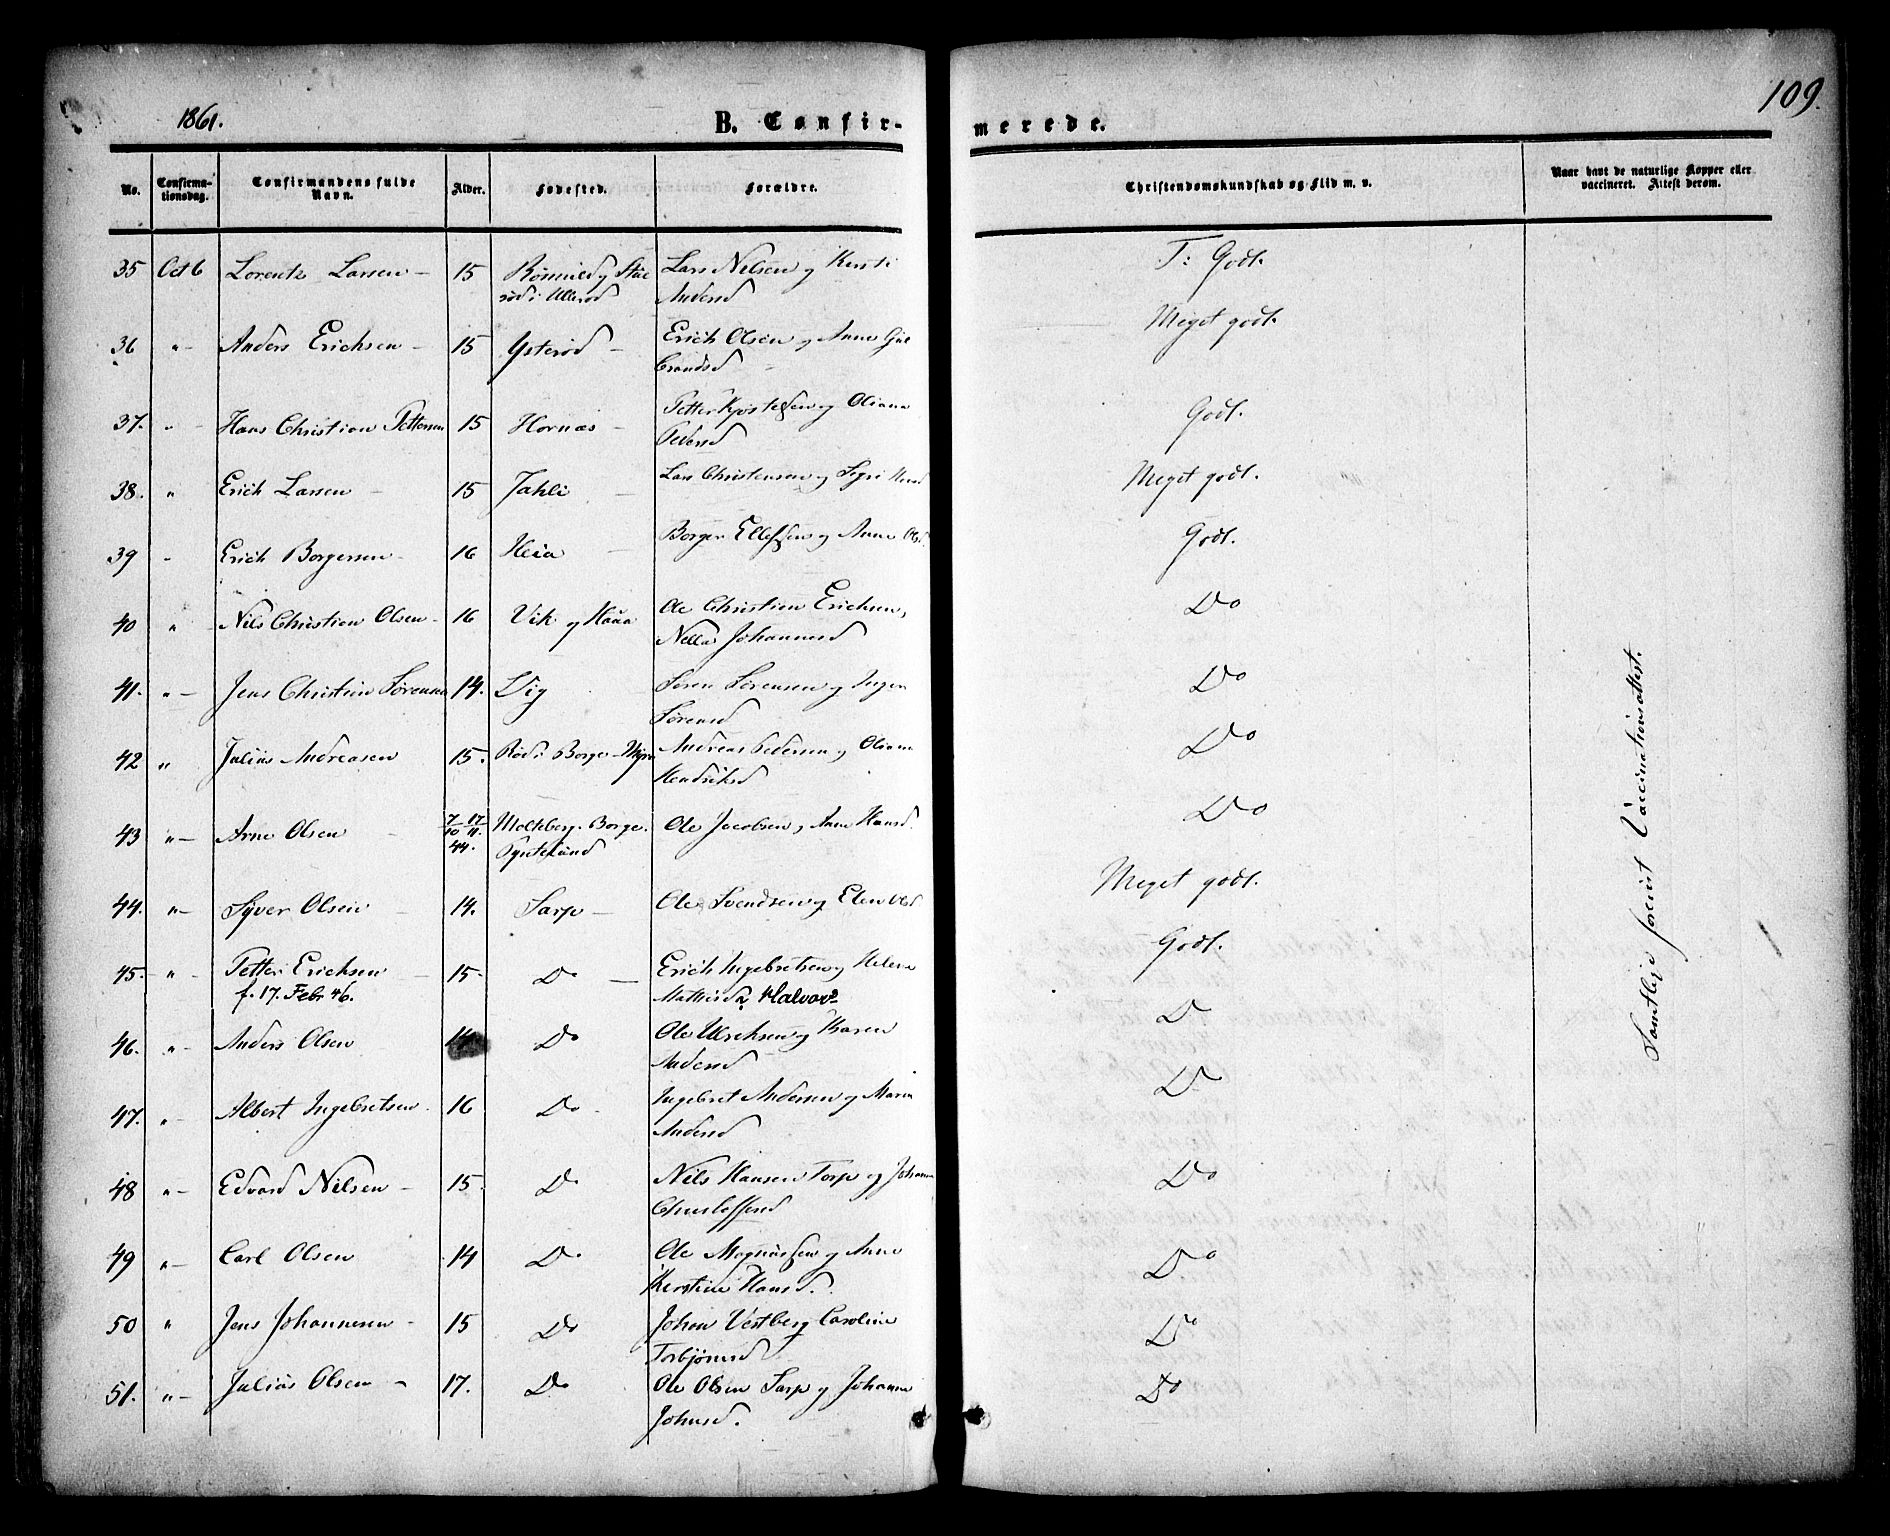 1861.
B. Confir-
merede.
109.
No.
Confirma-
tionsdag.
Confirmandens fulde
Navn.
Alder.
Fødested.
Forældre.
Christendomskundskab og Flid m. v.
Naar havt de naturlige Kopper eller
vaccineret. Attest derom.
35 Oct 6 Lorentz Larsen - 15 Lars Nilsen og Kersti T: Godt.
Ullerød Andersd
36 " - Anders Erichsen - 15 Ysterød - Erich Olsen og Anne Gul Meget godt.
brandsd
37. " - Hans Christian Pettersen 15 Hornæs - Petter og Oliana Godt.
Pedersd
38. " Erich Larsen - 15 Jahli - Lars Christensen og Sigri Meget godt.
39 " Erich Borgersen - 16 Heia - Borger Ellefsen og Anne Olsd Godt.
40 " Nils Christian Olsen - 16 Vik og Ole Christian Erichsen, Do
Johannesd
41. " - Jens Christian Sørensen 14. Dig Søren Sørensen og Inger Do
Sørensd
42 " Julius Andreasen 15. Borge Andreas Pedersen og Oliana Do
Hendriksd
43 " - Arne Olsen 7/10 17/11 Molteberg. Borge. Ole Jacobsen og Anne Hansd. Do
44.
44. " - Syver Olsen - 14. Sarp - Ole Svendsen og Elen Olsd Meget godt.
45. " - Petter Erichsen - 15. Do - Erich Ingebretsen og Helene Godt.
f. 17. Febr 46. Halvorsd
46. " - Anders Olsen 14 Do Ole Ulrichsen og Karen Do
Andersd
47. " - Albert Ingebretsen. 16 Do. Ingebret Andersen og Maria Do
Andersd
48 " - Edvard Nilsen - 15. Do Nils Hansen Torp og Johanne Do
49 " - Carl Olsen 14 Do Ole Magnussen og Anne Do
Kerstine Hansd.
50 " Jens Johannesen - 15 Do Johan Vestberg Caroline Do
Torbjørnsd
51. " - Julius Olsen - 17. Do Ole Olsen Sarp og Johanne Do
Johnsd.
Samtlige forevist Vaccinationsattest.